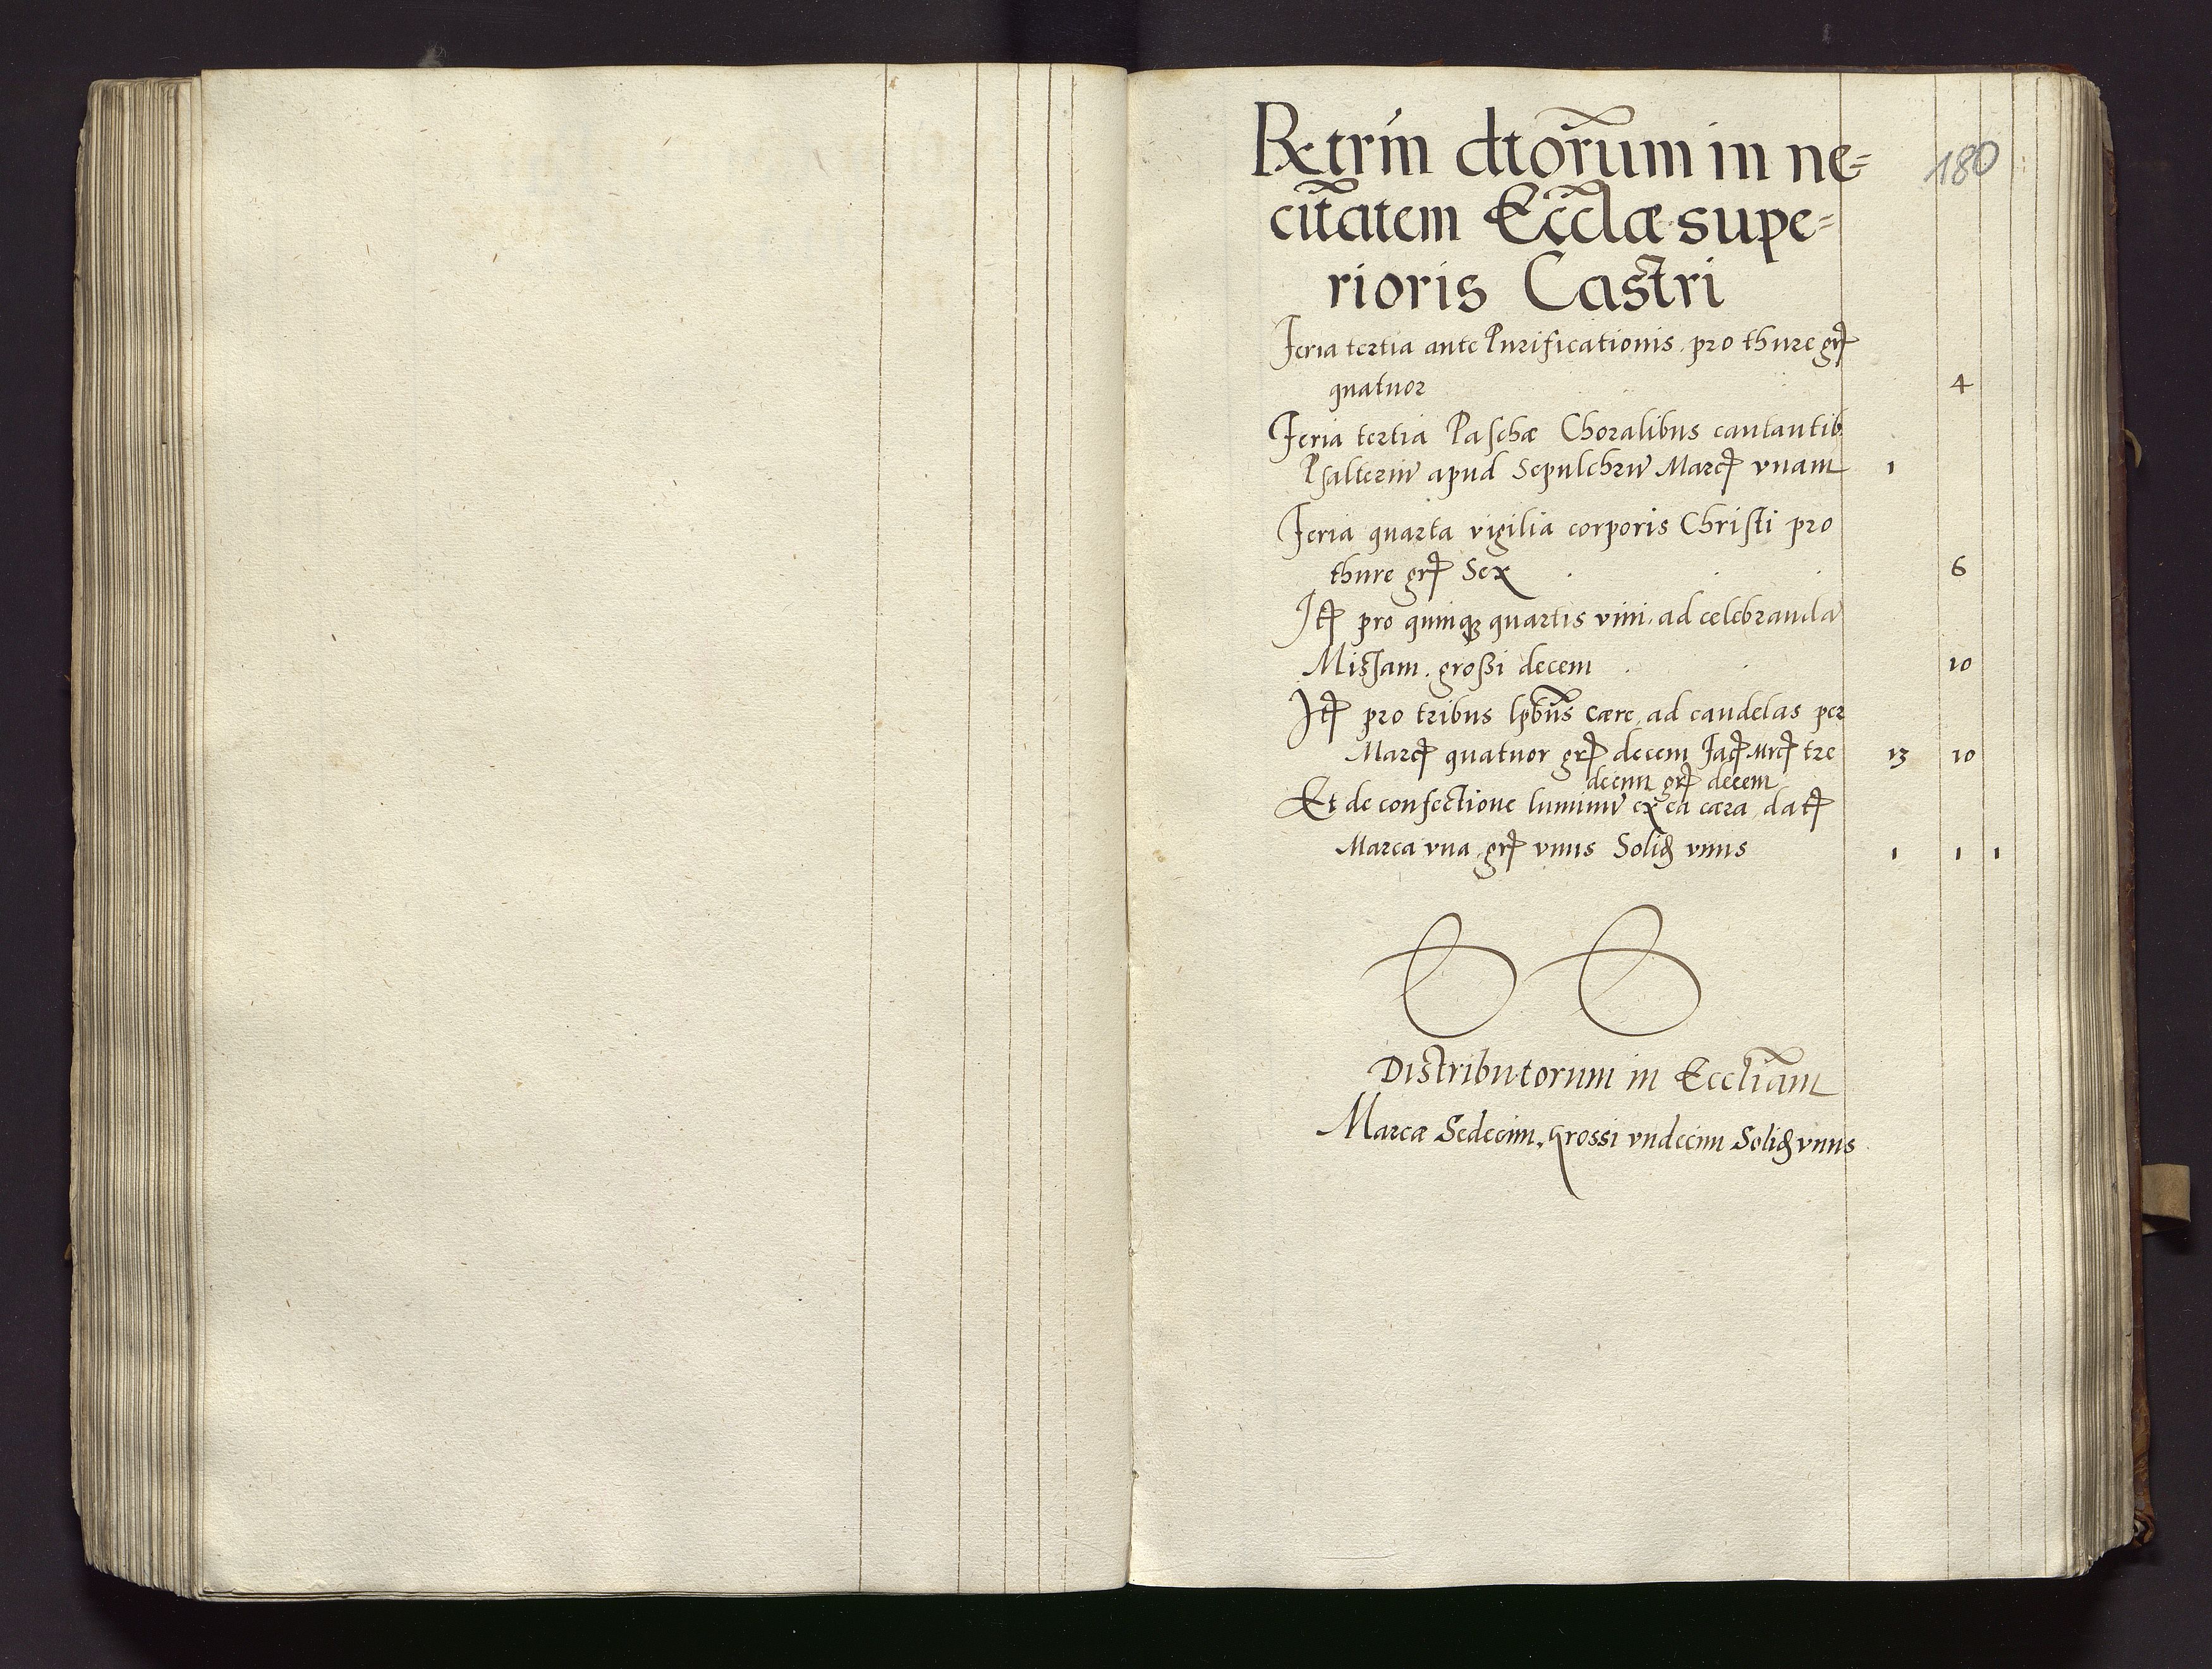 Rx trm̃ dtorum̃ in ne=
180
citãtem Eccl̃æ supe=
rioris Castri
Feria tertia ante Purificationis pro thure grſ
quatuor 4
Feria tertia Paschæ Choralibus cantantib
Psalteriũ apud Sepulchrũ Marcſ vnam 1
Feria quarta vigilia corporis Christi pro
thure grſ Sex 6
Itſ pro quinqꝫ quartis vini ad celebrandã
Missam . großi decem 10
Itſ pro tribus lpb̃us cære ad candelas per
Marcſ quatuor grſ decem facſ Mrcſ tre 13 10
decim grſ decem
Et de confectione luminũ ex ea cæra datſ
Marca vna grſ vnus Solið vnus 1 1 1
Distributorum in Eccl̃iam
Marcæ Sedecim, grossi vndecim Solið vnus